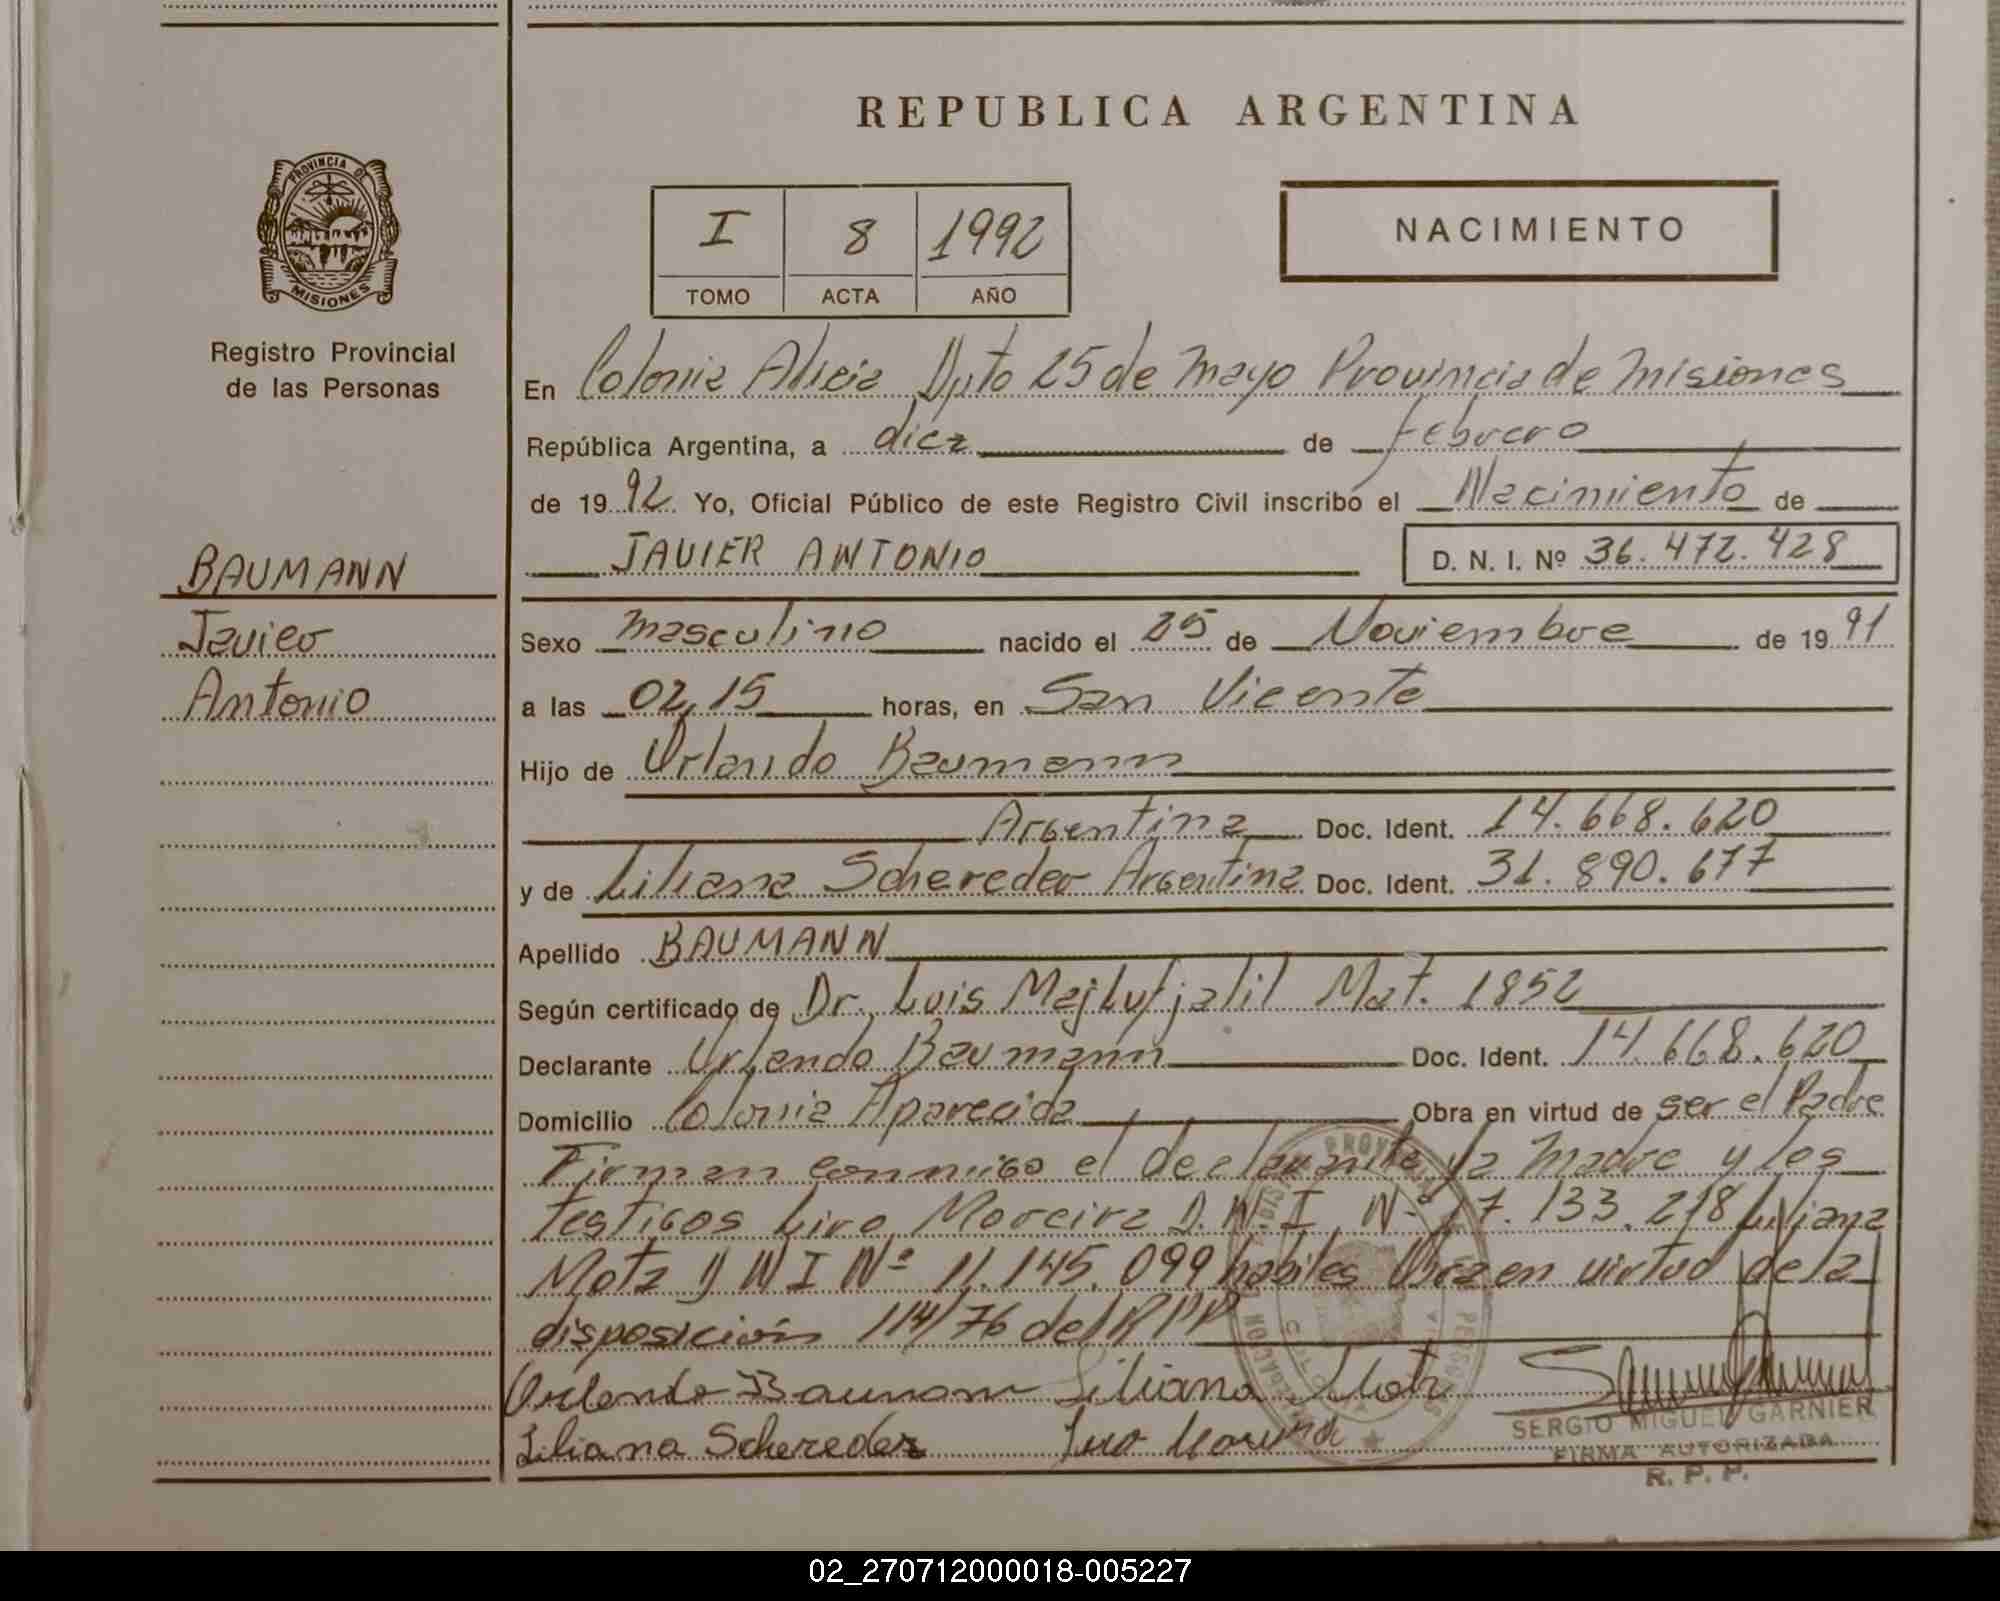 REPUBLICA ARGENTINA
PROVINCIA DE
MISIONES
Registro Provincial
de las Personas
I 8 1992
TOMO ACTA AÑO
NACIMIENTO
En Colonia Alicia Dpto 25 de Mayo Provincia de Misiones
República Argentina, a diez de febrero
de 1992. Yo, Oficial Público de este Registro Civil inscribo el Nacimiento de
JAVIER ANTONIO D. N. I. Nº 36.472.428
BAUMANN
Javier
Antonio
Sexo Masculino nacido el 25 de Noviembre de 1991
a las 02,15 horas, en San Vicente
Hijo de Orlando Baumann
Argentina Doc. Ident. 14.668.620
y de Liliana Schereder Argentina Doc. Ident. 31.890.677
Apellido BAUMANN
Según certificado de Dr. Luis Majluf jalil Mat. 1852
Declarante Orlando Baumann Doc. Ident. 14.668.620
Domicilio Colonia Aparecida Obra en virtud de ser el Padre
Firman conmigo el declarante y la Madre y los
testigos Liro Moreira D.N.I. Nº 17.133.218
Mota D N I Nº 11.145.099 habiles Obra en virtud de la
disposición 114/76 del RPP
Orlando Baumann Liliana Mota
Liliana Schereder
SERGIO MIGUEL GARNIER
FIRMA AUTORIZADA
R. P. P.
02_270712000018-005227